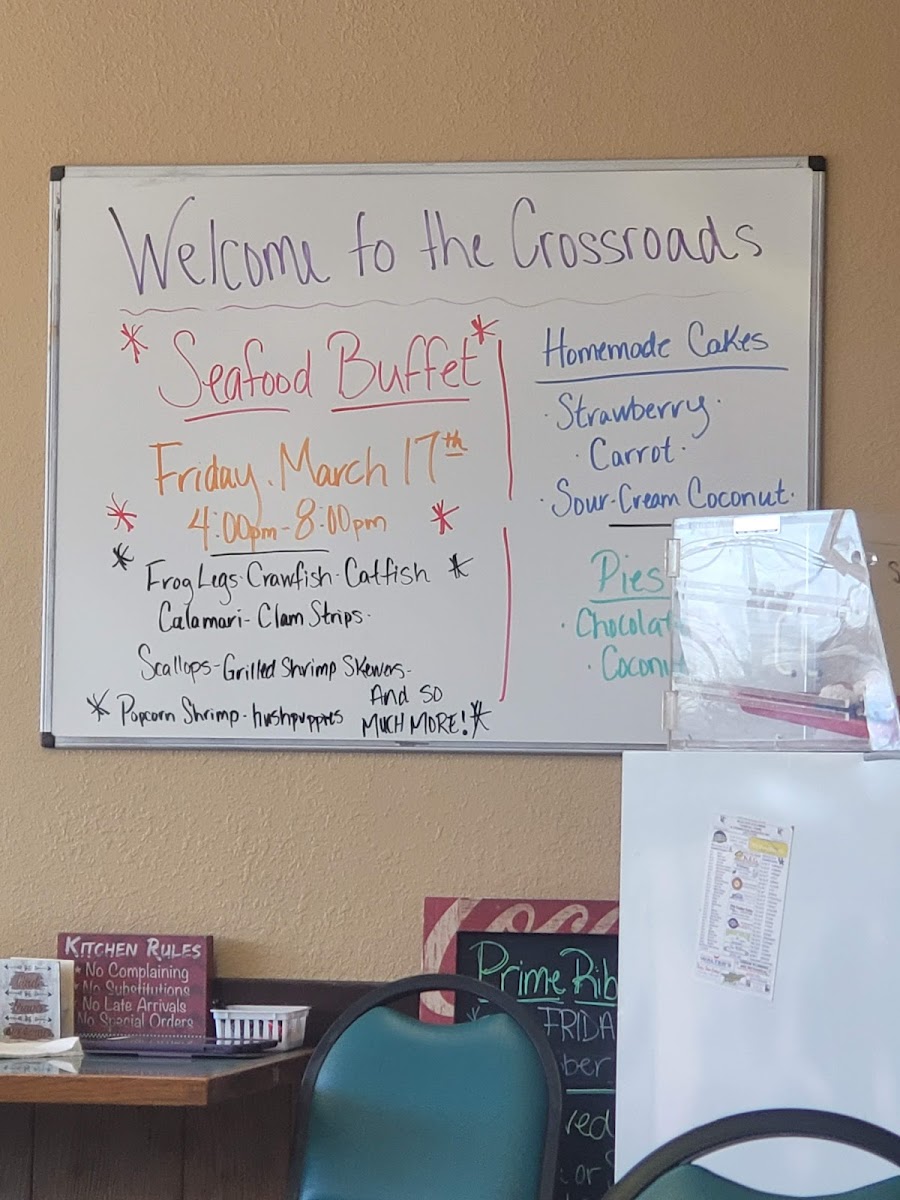 Welcome to the Crossroads
* Seafood Buffet *
Friday. March 17th
* 4:00pm - 8:00pm *
* Frog Legs - Crawfish - Catfish *
Calamari - Clam Strips -
Scallops - Grilled Shrimp Skewers -
* Popcorn Shrimp - hushpuppies And so
MUCH MORE! *
Homemade Cakes
· Strawberry ·
· Carrot ·
· Sour-Cream Coconut ·
Pies
· Chocolat
· Coconu
KITCHEN RULES
* No Complaining
No Substitutions
No Late Arrivals
No Special Orders
Prime Rib
FRIDA
ber
ved
or